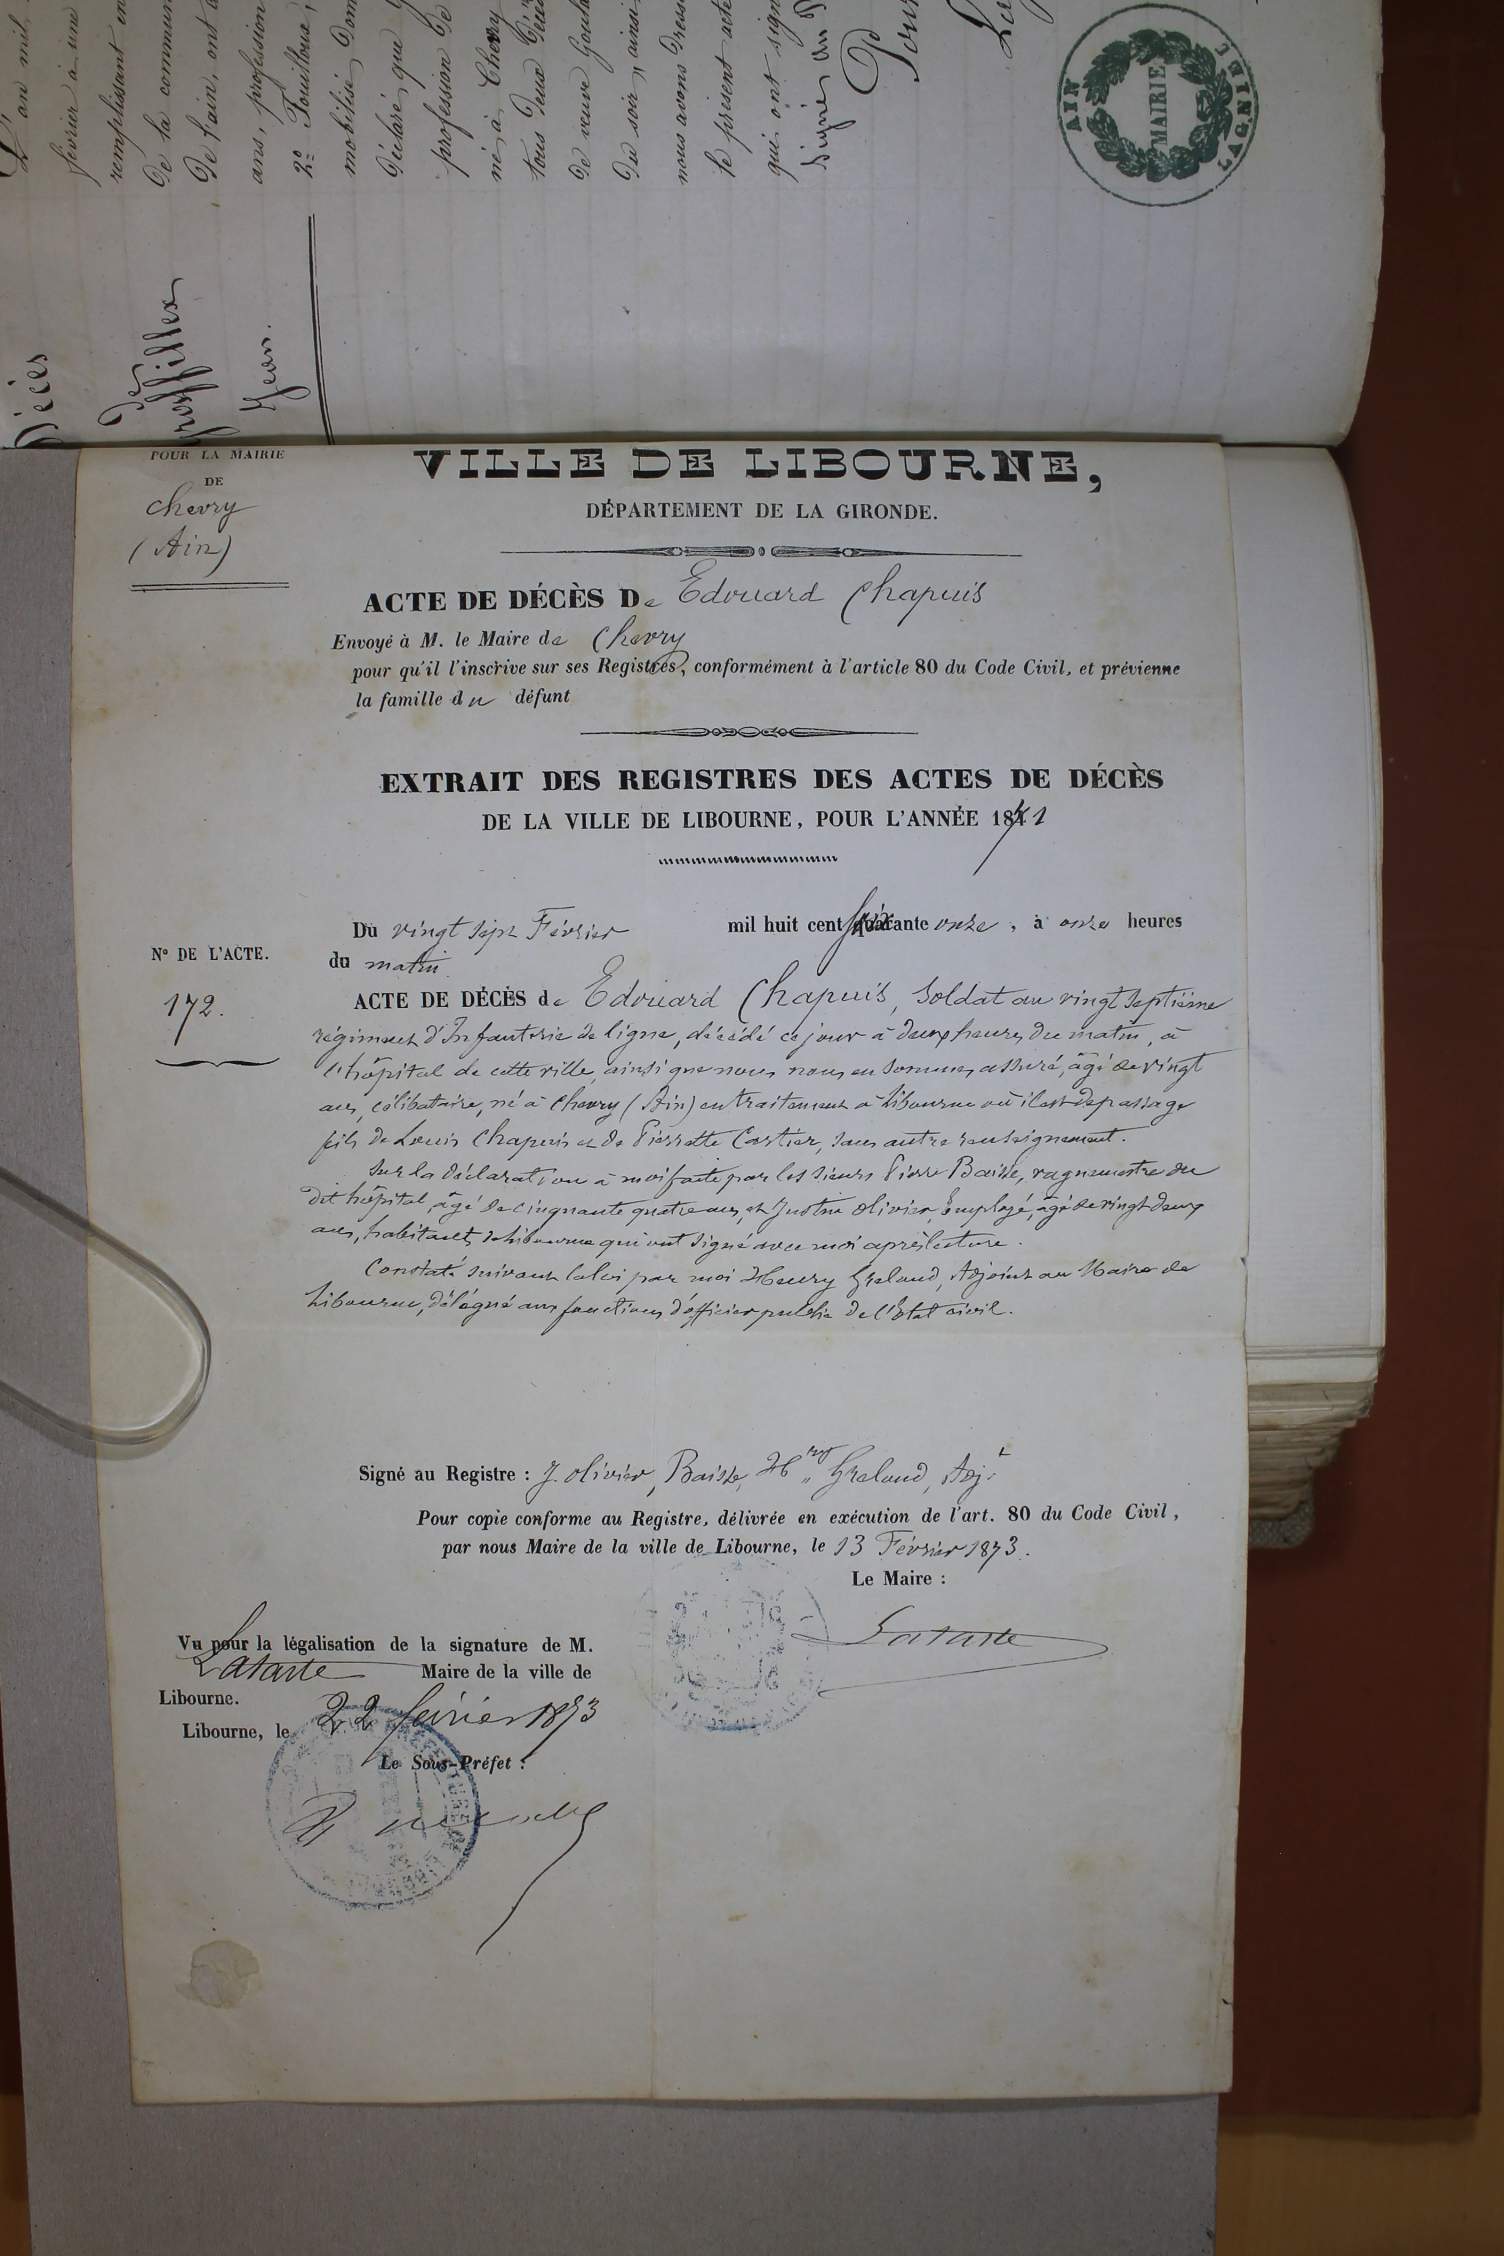 L'an mil
février à une
remplissant en
de la commun
de l'ain, ont
ans, profession
2º Fouilloux,
mobilisé, dom
déclaré, que
profession de
né à Chevry
tous deux
de veuve Goul
du soir, ainsi
nous avons dressé
le présent acte
qui ont sign
signé au
Pour
Décès
de
Groffillex
Jean.
AIN
MAIRIE
POUR LA MAIRIE
DE
Chevry
(Ain)
VILLE DE LIBOURNE,
DÉPARTEMENT DE LA GIRONDE.
ACTE DE DÉCÈS De Edouard Chapuis
Envoyé à M. le Maire de Chevry
pour qu'il l'inscrive sur ses Registres, conformément à l'article 80 du Code Civil, et prévienne
la famille du défunt
EXTRAIT DES REGISTRES DES ACTES DE DÉCÈS
DE LA VILLE DE LIBOURNE, POUR L'ANNÉE 1871
Du vingt sept Février mil huit cent soixante onze, à onze heures
du matin.
Nº DE L'ACTE.
172.
ACTE DE DÉCÈS de Edouard Chapuis, soldat au vingt septième
régiment d'Infanterie de ligne, décédé ce jour à deux heures du matin, à
l'hôpital de cette ville, ainsi que nous nous en sommes assuré, âgé de vingt
ans, célibataire, né à Chevry (Ain) en traitement à Libourne où il est de passage
fils de Louis Chapuis et de Pierrette Cartier, sans autre renseignement.
Sur la déclaration à moi faite par les sieurs Pierre Baisse, vaguemestre du
dit hôpital, âgé de cinquante quatre ans, et Justin Olivier, Employé, âgé de vingt deux
ans, habitants de Libourne qui ont signé avec moi après lecture.
Constaté suivant la loi par moi Henry Greloud, Adjoint au Maire de
Libourne, délégué aux fonctions d'officier public de l'état civil.
Signé au Registre : J. Olivier, Baisse, Hry Greloud, Adjt
Pour copie conforme au Registre, délivrée en exécution de l'art. 80 du Code Civil,
par nous Maire de la ville de Libourne, le 13 Février 1873.
Le Maire :
Lataste
Vu pour la légalisation de la signature de M.
Lataste Maire de la ville de
Libourne.
Libourne, le 22 février 1873
Le Sous-Préfet :